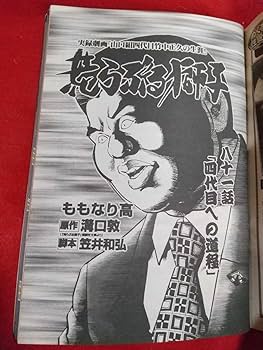 実録劇画「山口組四代目竹中正久の生涯」
荒らぶる獅子
八十一話
「四代目への道程」
ももなり高
原作 溝口敦
脚本 笠井和弘